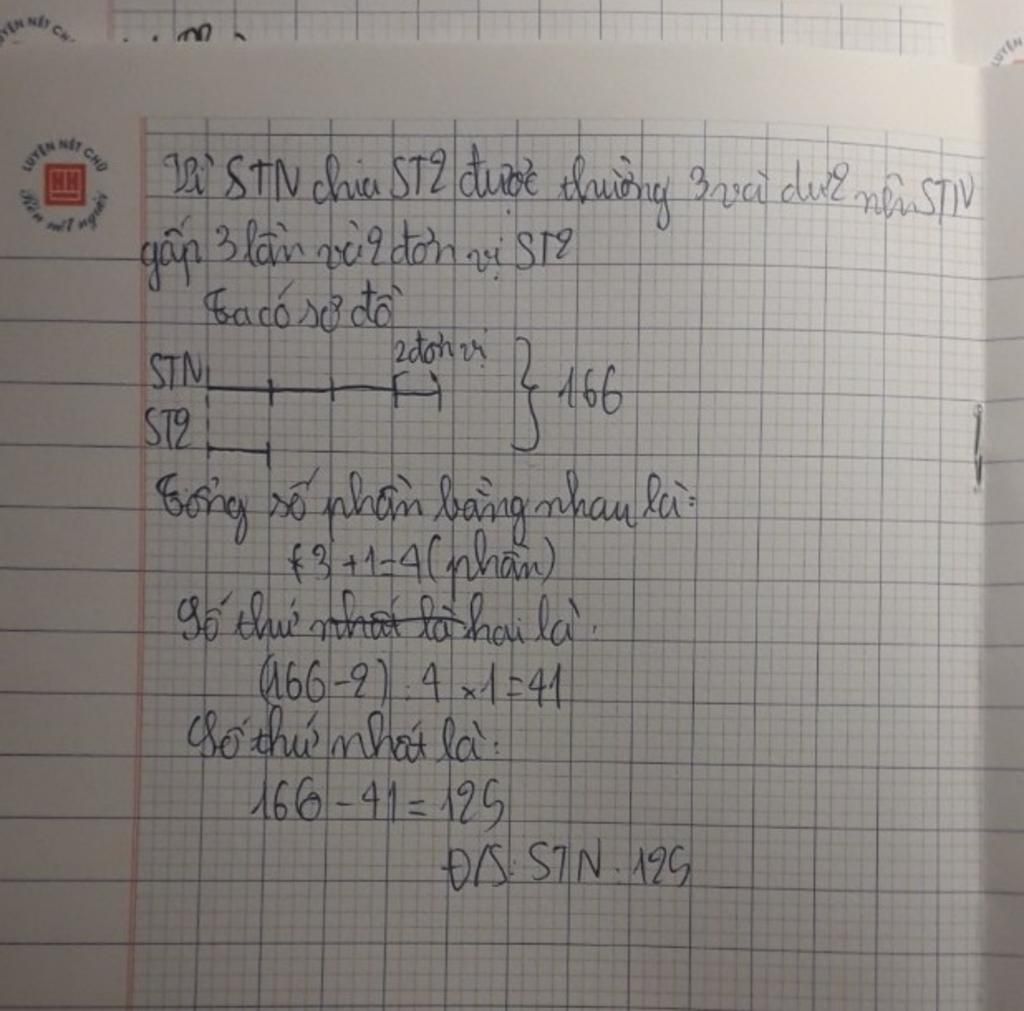 LUYỆN NÉT CHỮ
HH
Rèn nết người
Vì STN chia ST2 được thương 3 và dư 2 nên STN
gấp 3 lần và 2 đơn vị ST2
Ta có sơ đồ
2 đơn vị
STN
166
ST2
Tổng số phần bằng nhau là:
3 + 1 = 4 (phần)
Số thứ nhất là hai là:
(166 - 2) : 4 x 1 = 41
Số thứ nhất là:
166 - 41 = 125
Đ/S: STN: 125